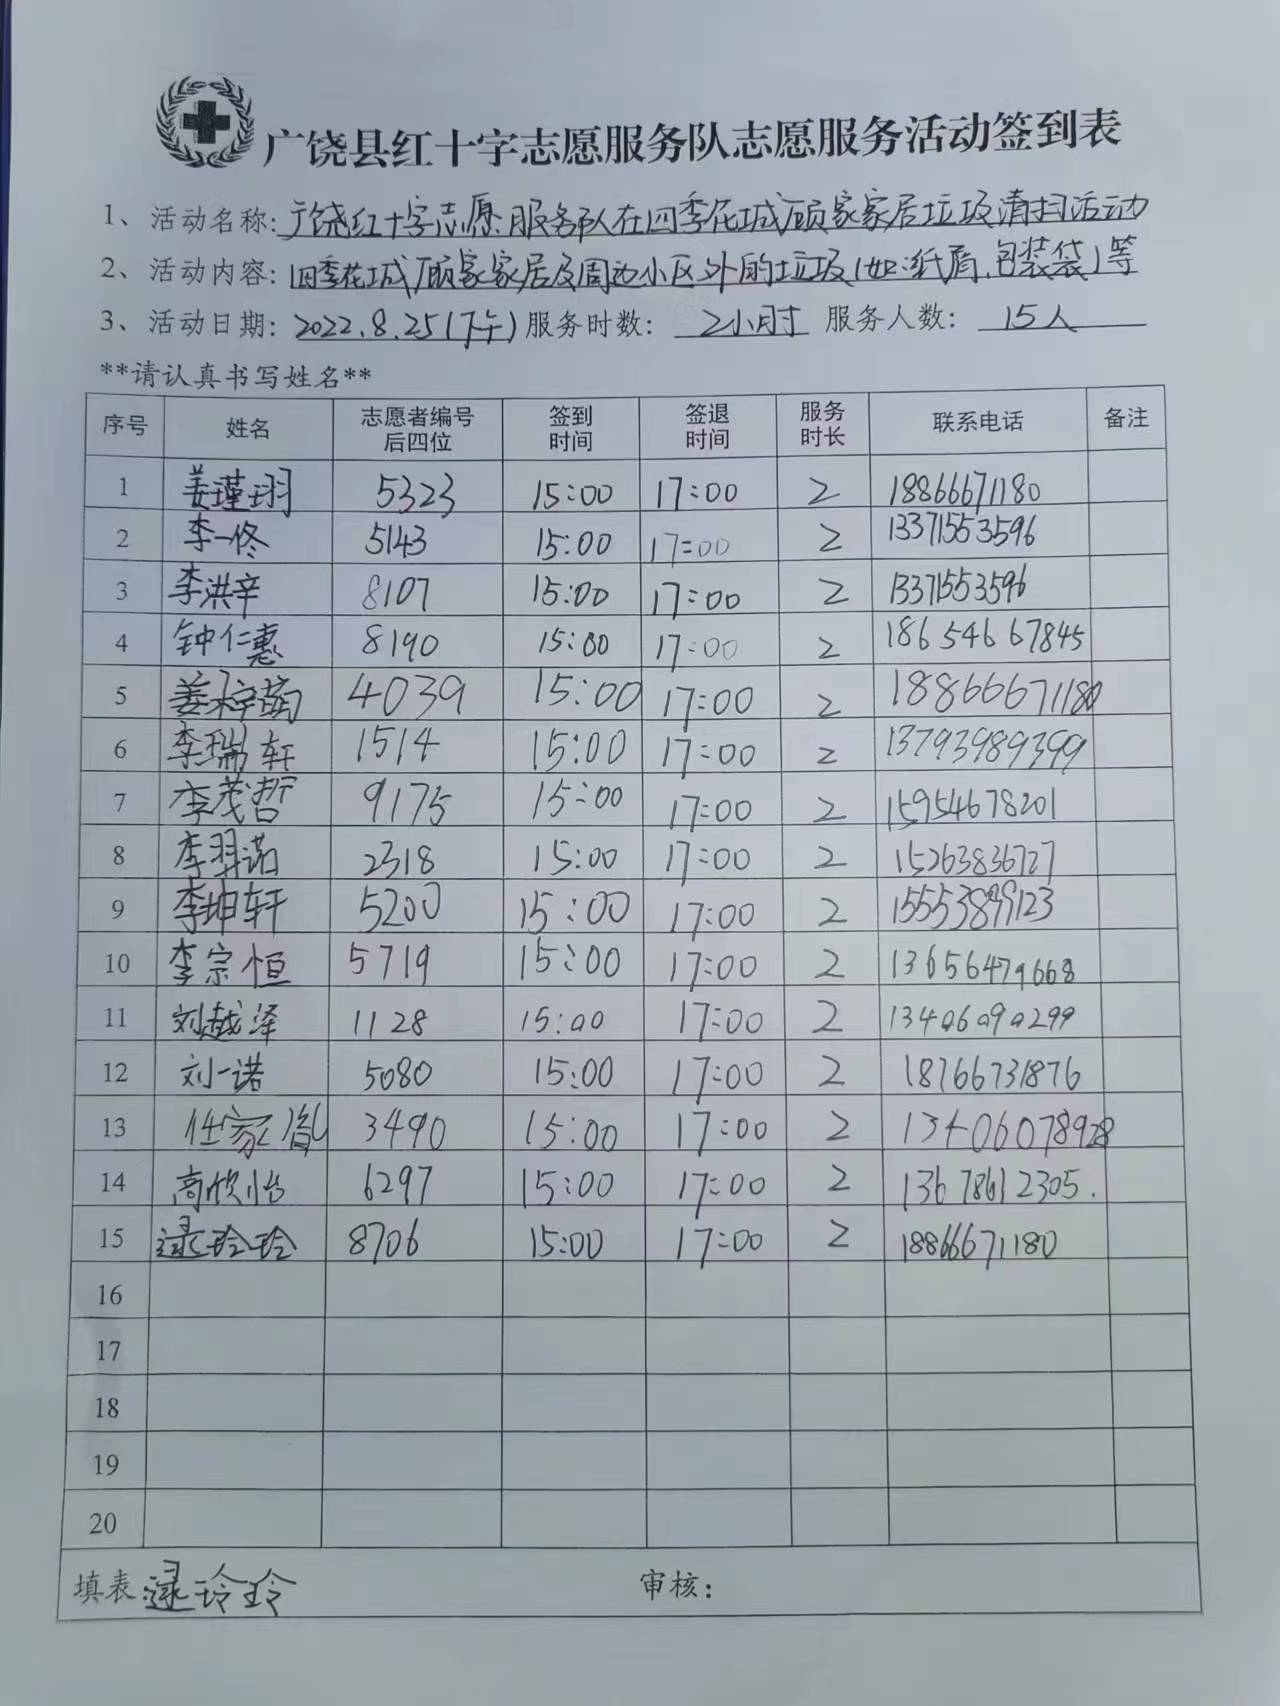 广饶县红十字志愿服务队志愿服务活动签到表
1、活动名称:广饶红十字志愿服务队在四季花城顾家家居垃圾清扫活动
2、活动内容:四季花城顾家家居及周边小区外的垃圾(如:纸屑,包装袋)等
3、活动日期:2022.8.25(下午)服务时数:2小时 服务人数:15人
**请认真书写姓名**
序号 姓名 志愿者编号后四位 签到时间 签退时间 服务时长 联系电话 备注
1 姜瑾翊 5323 15:00 17:00 2 18866671180
2 李一佟 5143 15:00 17:00 2 13371553596
3 李洪辛 8107 15:00 17:00 2 13371553596
4 钟仁惠 8190 15:00 17:00 2 18654667845
5 姜梓菡 4039 15:00 17:00 2 18866671180
6 李瑞轩 1514 15:00 17:00 2 13793989399
7 李茂哲 9175 15:00 17:00 2 15954678201
8 李羿诺 2318 15:00 17:00 2 15263836727
9 李坤轩 5200 15:00 17:00 2 15553899123
10 李宗恒 5719 15:00 17:00 2 13656479668
11 刘越泽 1128 15:00 17:00 2 13406090299
12 刘一诺 5080 15:00 17:00 2 18766731876
13 任家胤 3490 15:00 17:00 2 13406078928
14 高欣怡 6297 15:00 17:00 2 13678612305.
15 逯玲玲 8706 15:00 17:00 2 18866671180
16
17
18
19
20
填表:逯玲玲 审核: